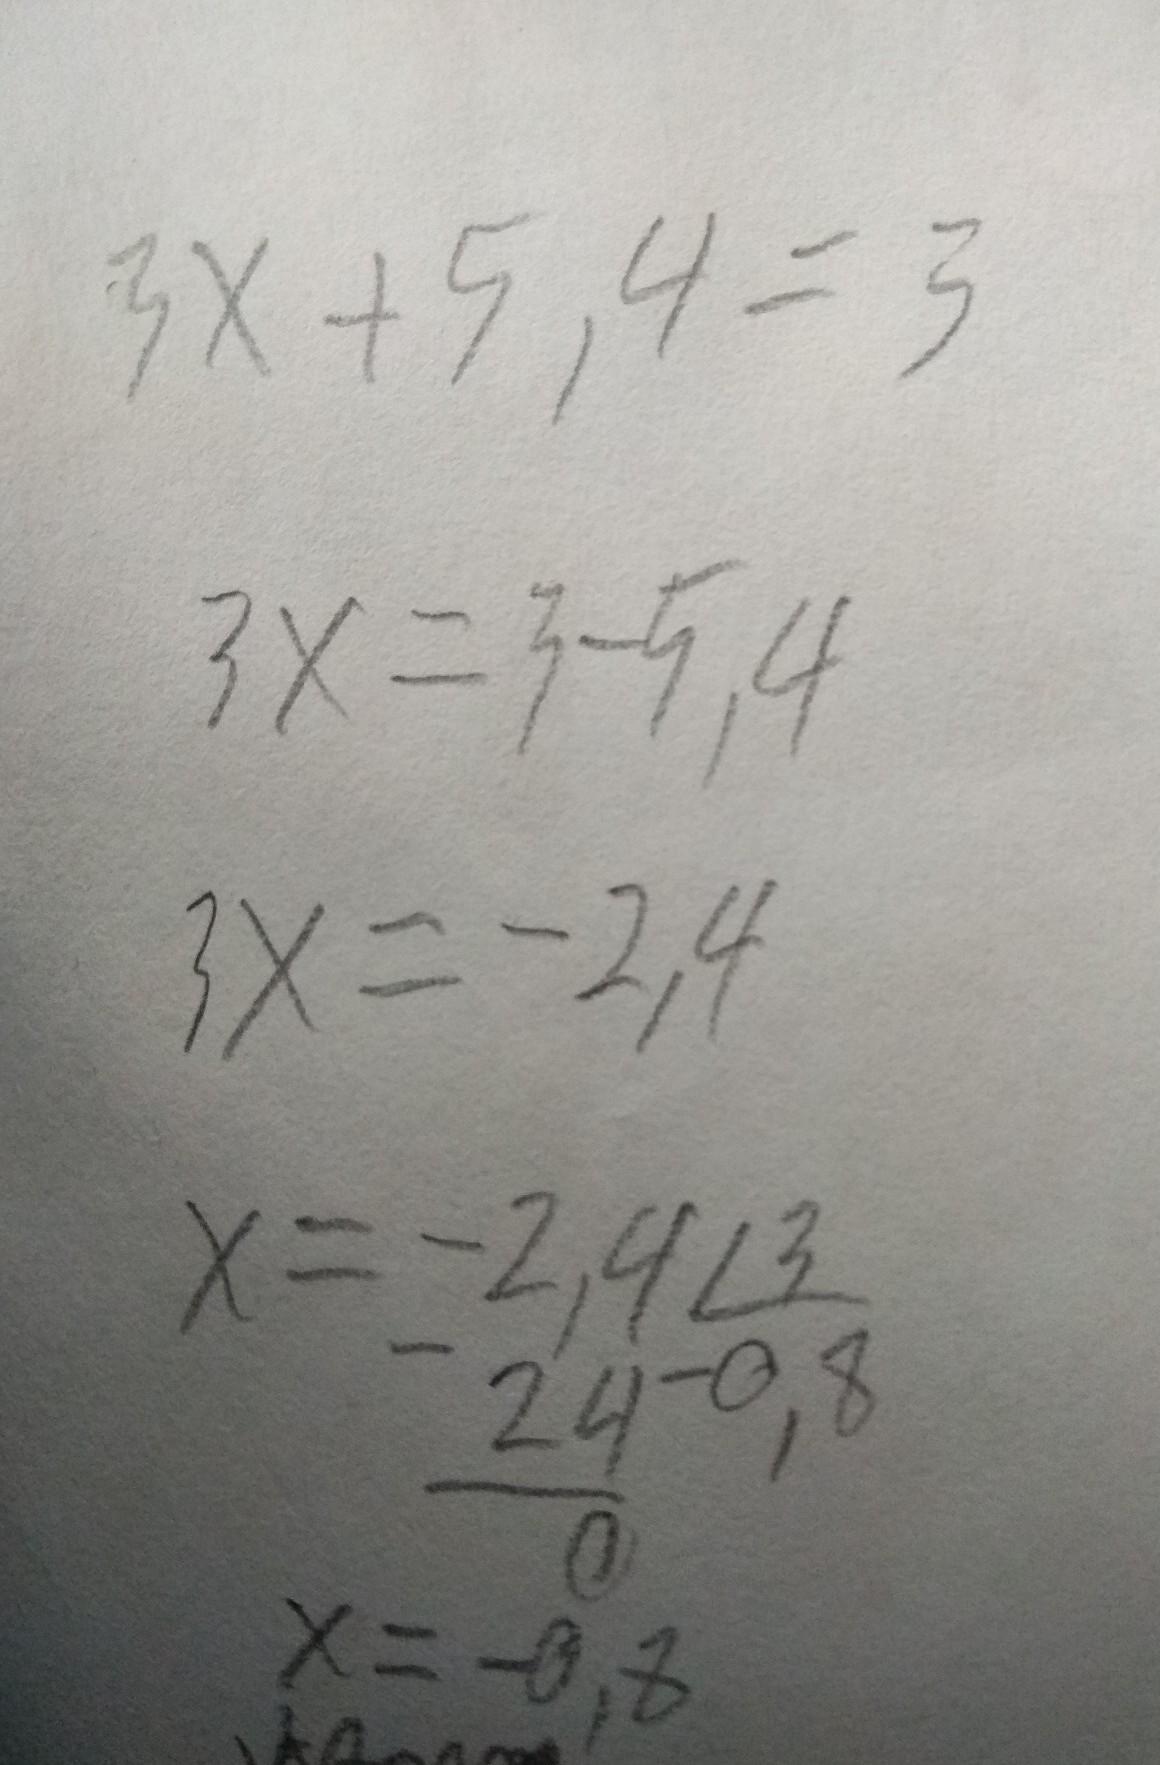 3x+5,4=3
3x=3-5,4
3x=-2,4
x=-2,4∟3
-24 -0,8
0
x=-0,8